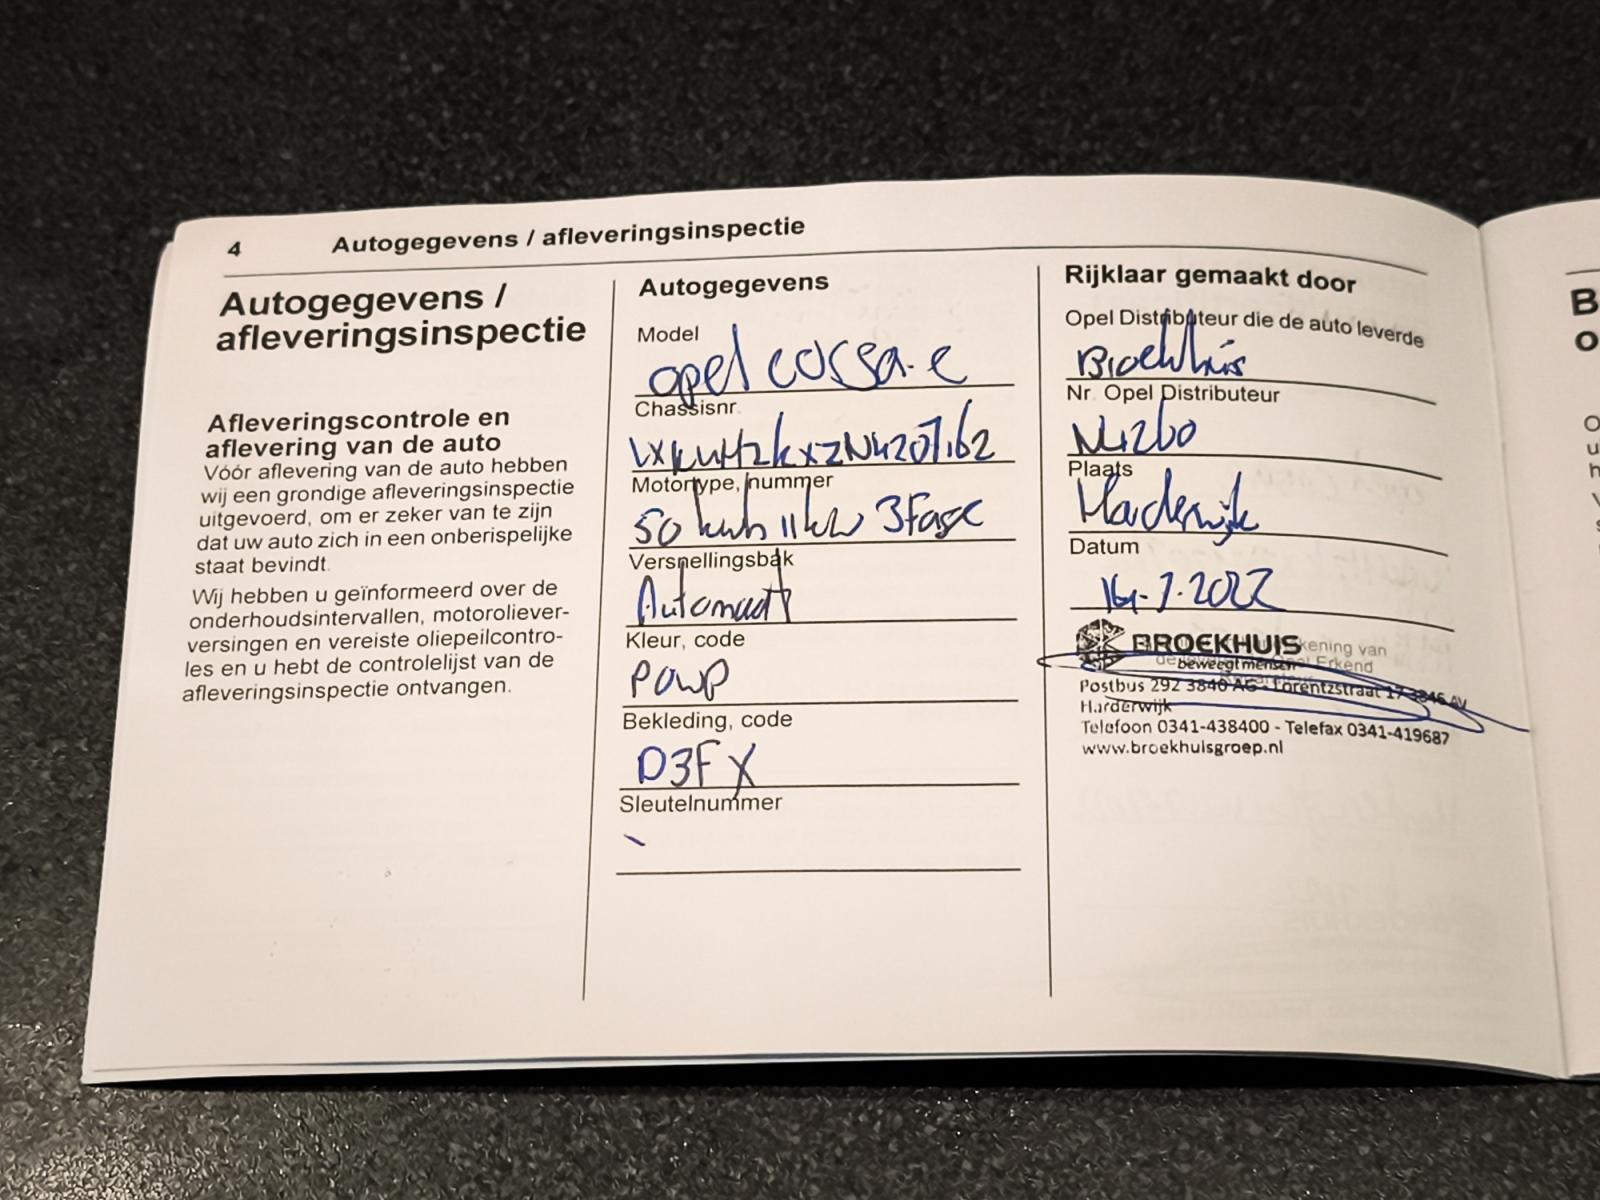 4 Autogegevens / afleveringsinspectie
Autogegevens /
afleveringsinspectie
Afleveringscontrole en
aflevering van de auto
Vóór aflevering van de auto hebben
wij een grondige afleveringsinspectie
uitgevoerd, om er zeker van te zijn
dat uw auto zich in een onberispelijke
staat bevindt.
Wij hebben u geïnformeerd over de
onderhoudsintervallen, motoroliever-
versingen en vereiste oliepeilcontro-
les en u hebt de controlelijst van de
afleveringsinspectie ontvangen.
Autogegevens
Model
opel corsa-e
Chassisnr.
Motortype, nummer
50 kwh 11kw 3Fase
Versnellingsbak
Automaat
Kleur, code
POWP
Bekleding, code
D3FX
Sleutelnummer
Rijklaar gemaakt door
Opel Distributeur die de auto leverde
Broekhuis
Nr. Opel Distributeur
Plaats
Harderwijk
Datum
2022
BROEKHUIS
beweegt mensen
kening van
Erkend
Postbus 292 3840 AG - Lorentzstraat 17 3846 AV
Harderwijk
Telefoon 0341-438400 - Telefax 0341-419687
www.broekhuisgroep.nl
B
o